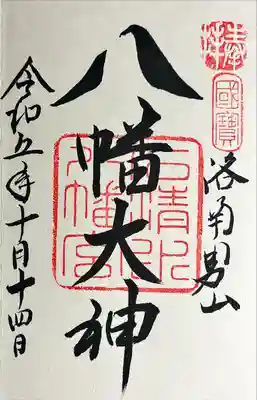 奉拝
國寶
洛南男山
八幡大神
石清水八幡宮
令和五年十月十四日